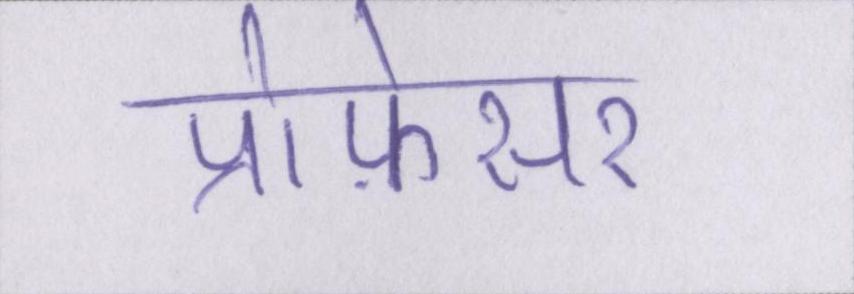 प्रोफ़ेसर